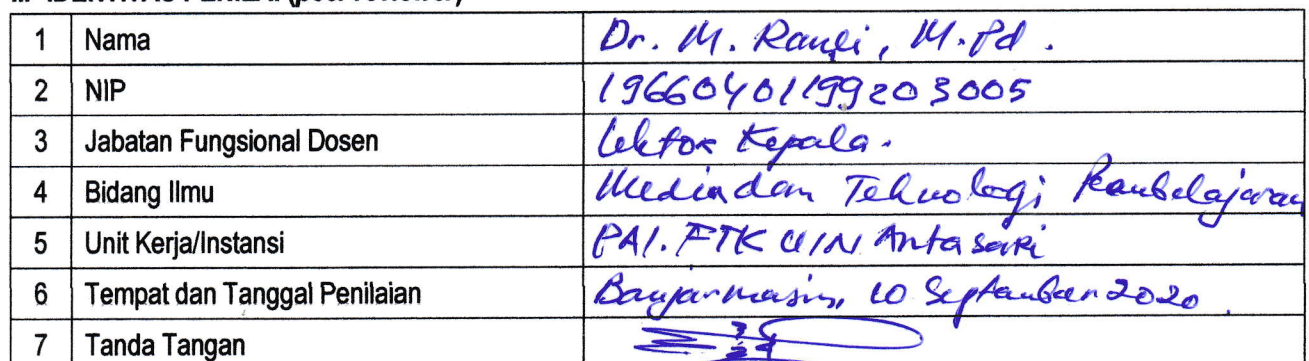 1 Nama Dr. M. Ramli, M.Pd.
2 NIP 19660401199203005
3 Jabatan Fungsional Dosen Lektor Kepala.
4 Bidang Ilmu Media dan Teknologi Pembelajaran
5 Unit Kerja/Instansi PAI. FTK UIN Antasari
6 Tempat dan Tanggal Penilaian Banjarmasin, 10 September 2020.
7 Tanda Tangan